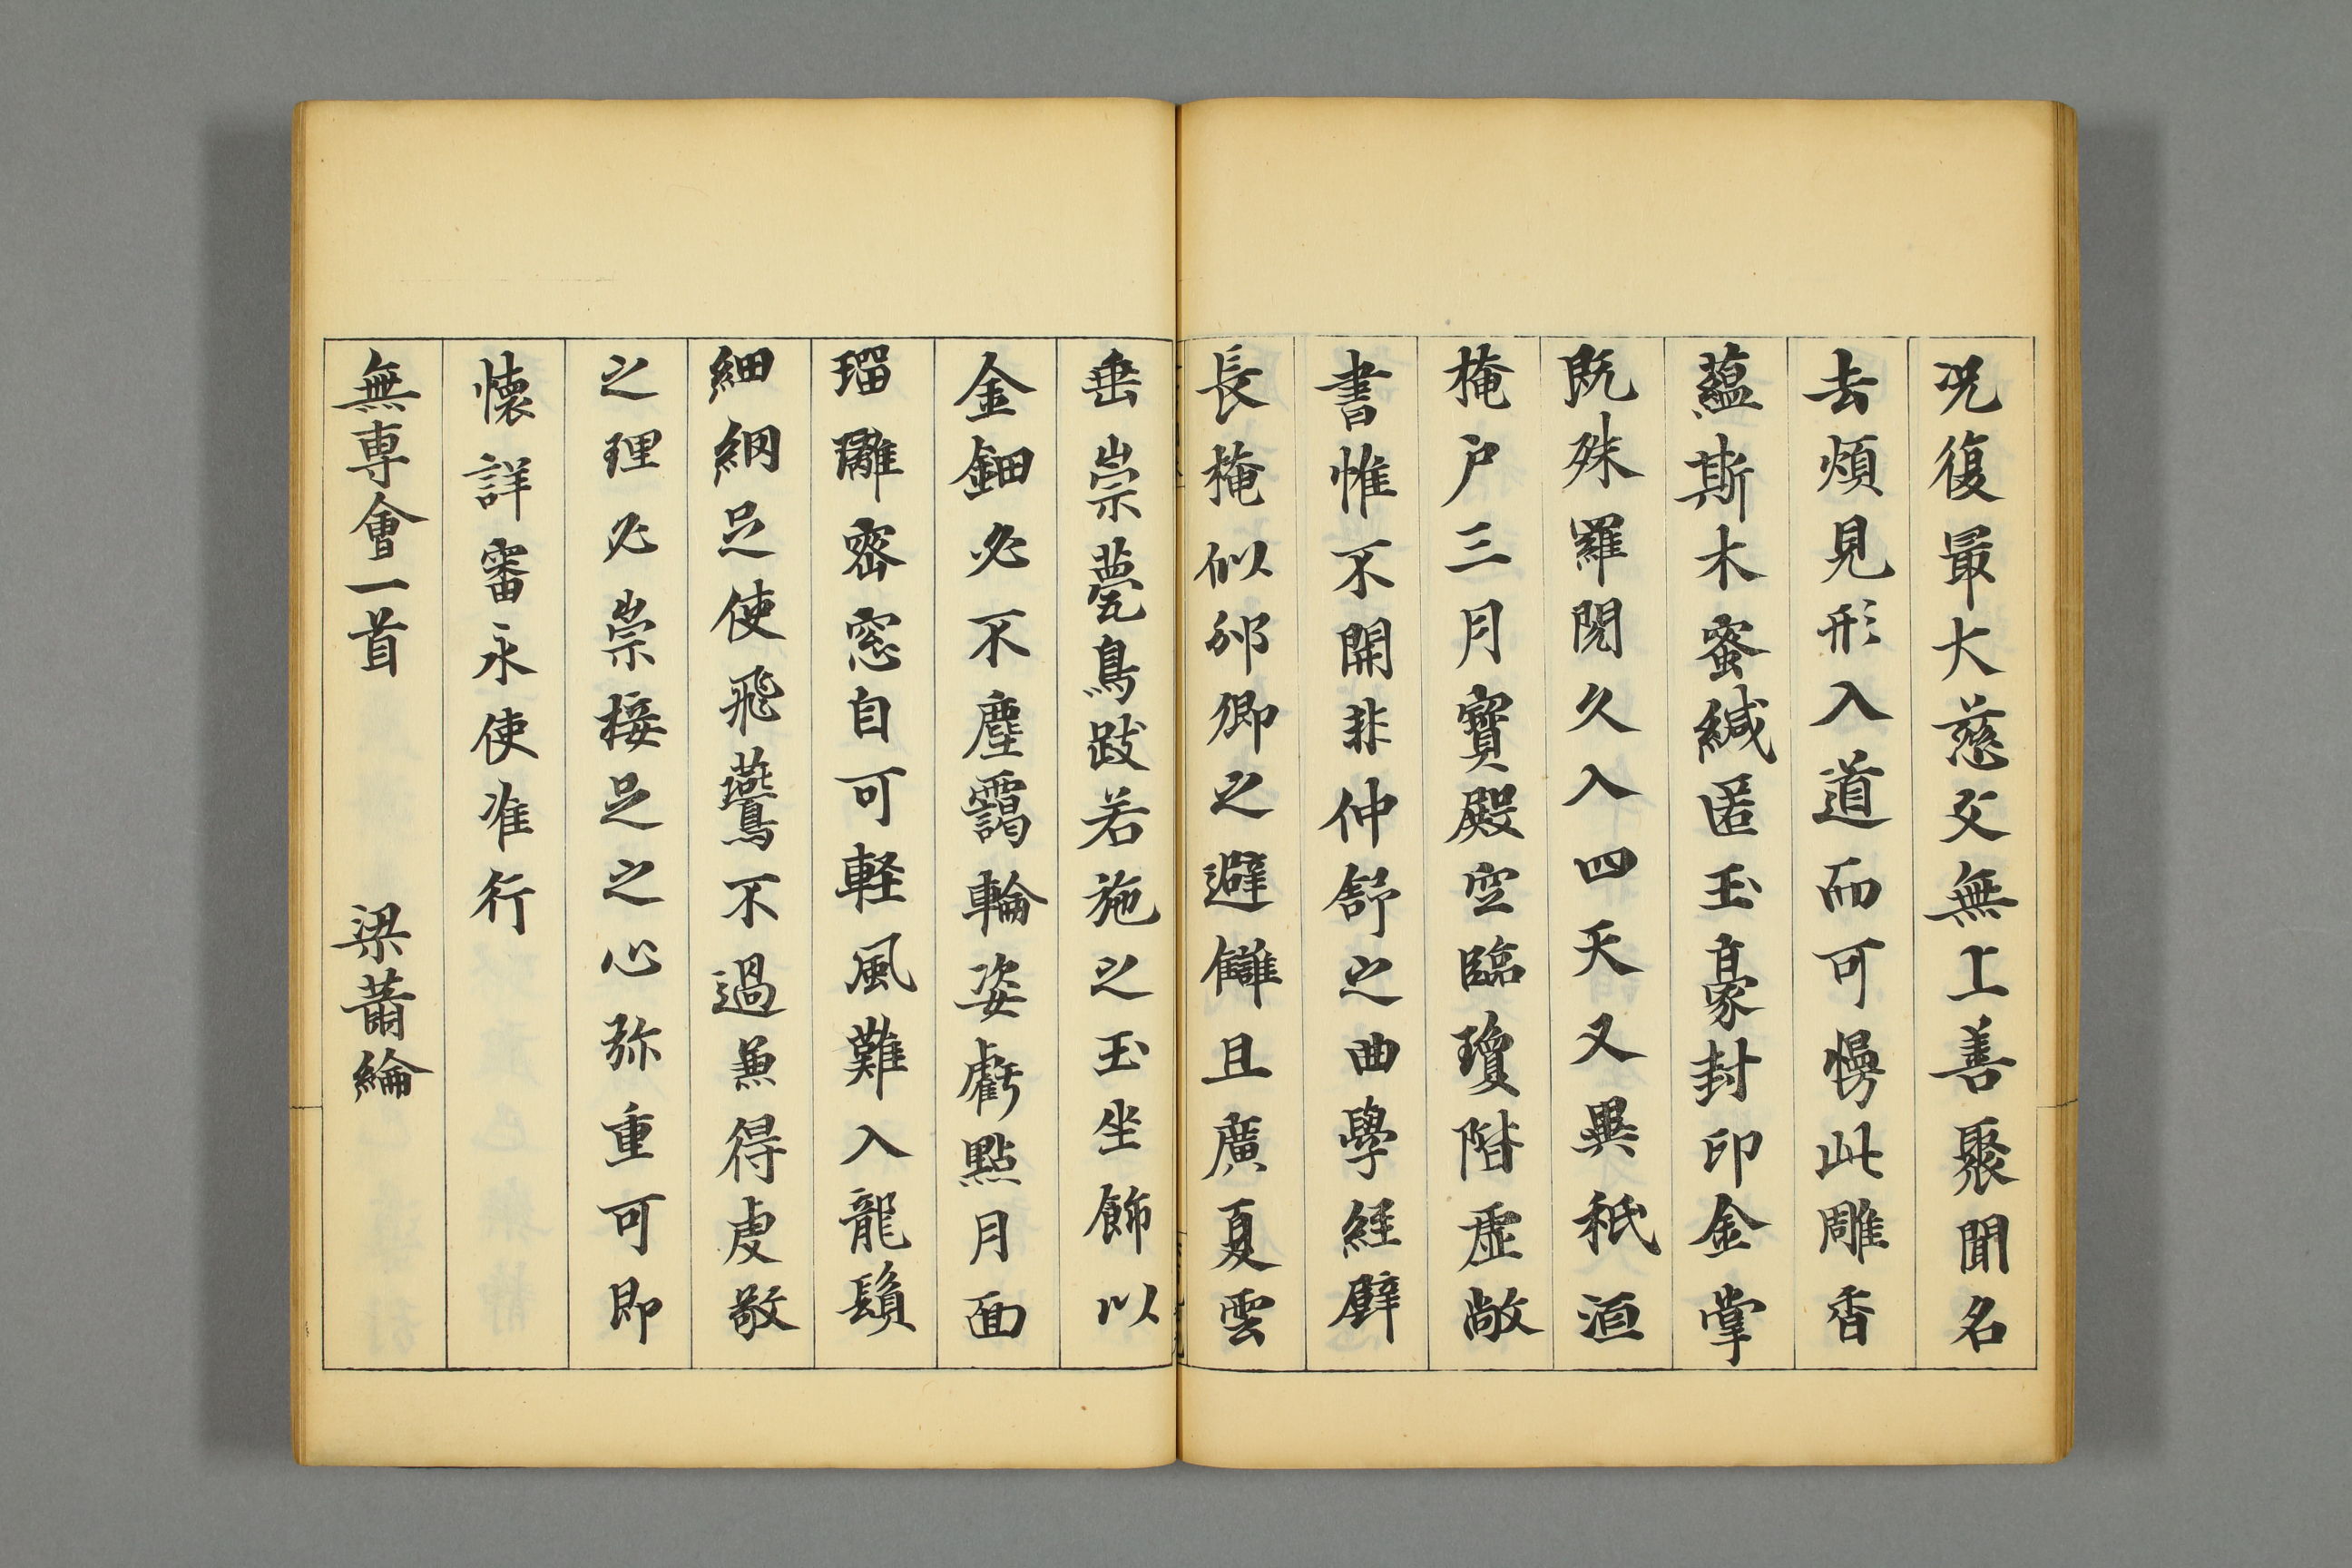 况復最大慈父無上善聚聞名
去煩見形入道而可慢此雕香
蘊斯木蜜緘匿玉豪封印金掌
既殊羅閱久入四天又異祇洹
掩户三月寳殿空臨瓊階虛敞
書帷不開非仲舒之曲學經壁
長掩似邠卿之避讎且廣夏雲
垂崇甍鳥跂若施之玉坐飾以
金鈿必不塵靄輪姿虧點月面
瑠璃密窓自可軽風難入龍鬚
細網足使飛鷰不過兼得虔敬
之理必崇接足之心弥重可即
懐詳審永使准行
無專會一首 梁蕭綸